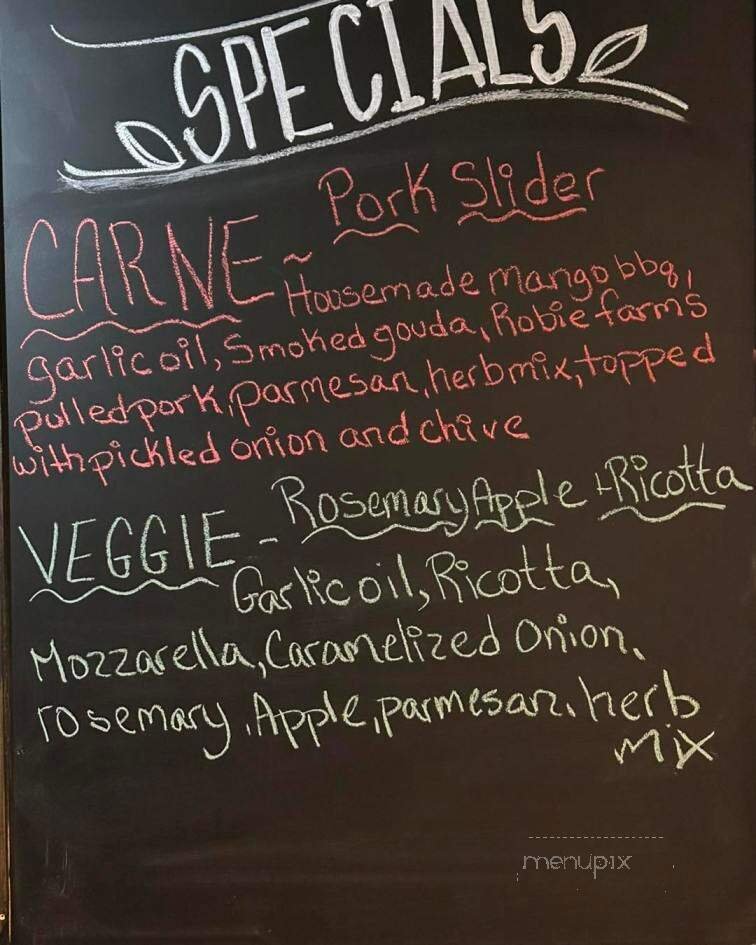 SPECIALS
CARNE ~ Pork Slider
Housemade mango bbq,
garlic oil, Smoked gouda, Robie farms
pulled pork, parmesan, herb mix, topped
with pickled onion and chive
VEGGIE - Rosemary Apple + Ricotta
Garlic oil, Ricotta,
Mozzarella, Caramelized Onion,
rosemary, Apple, parmesan, herb
mix
menupix